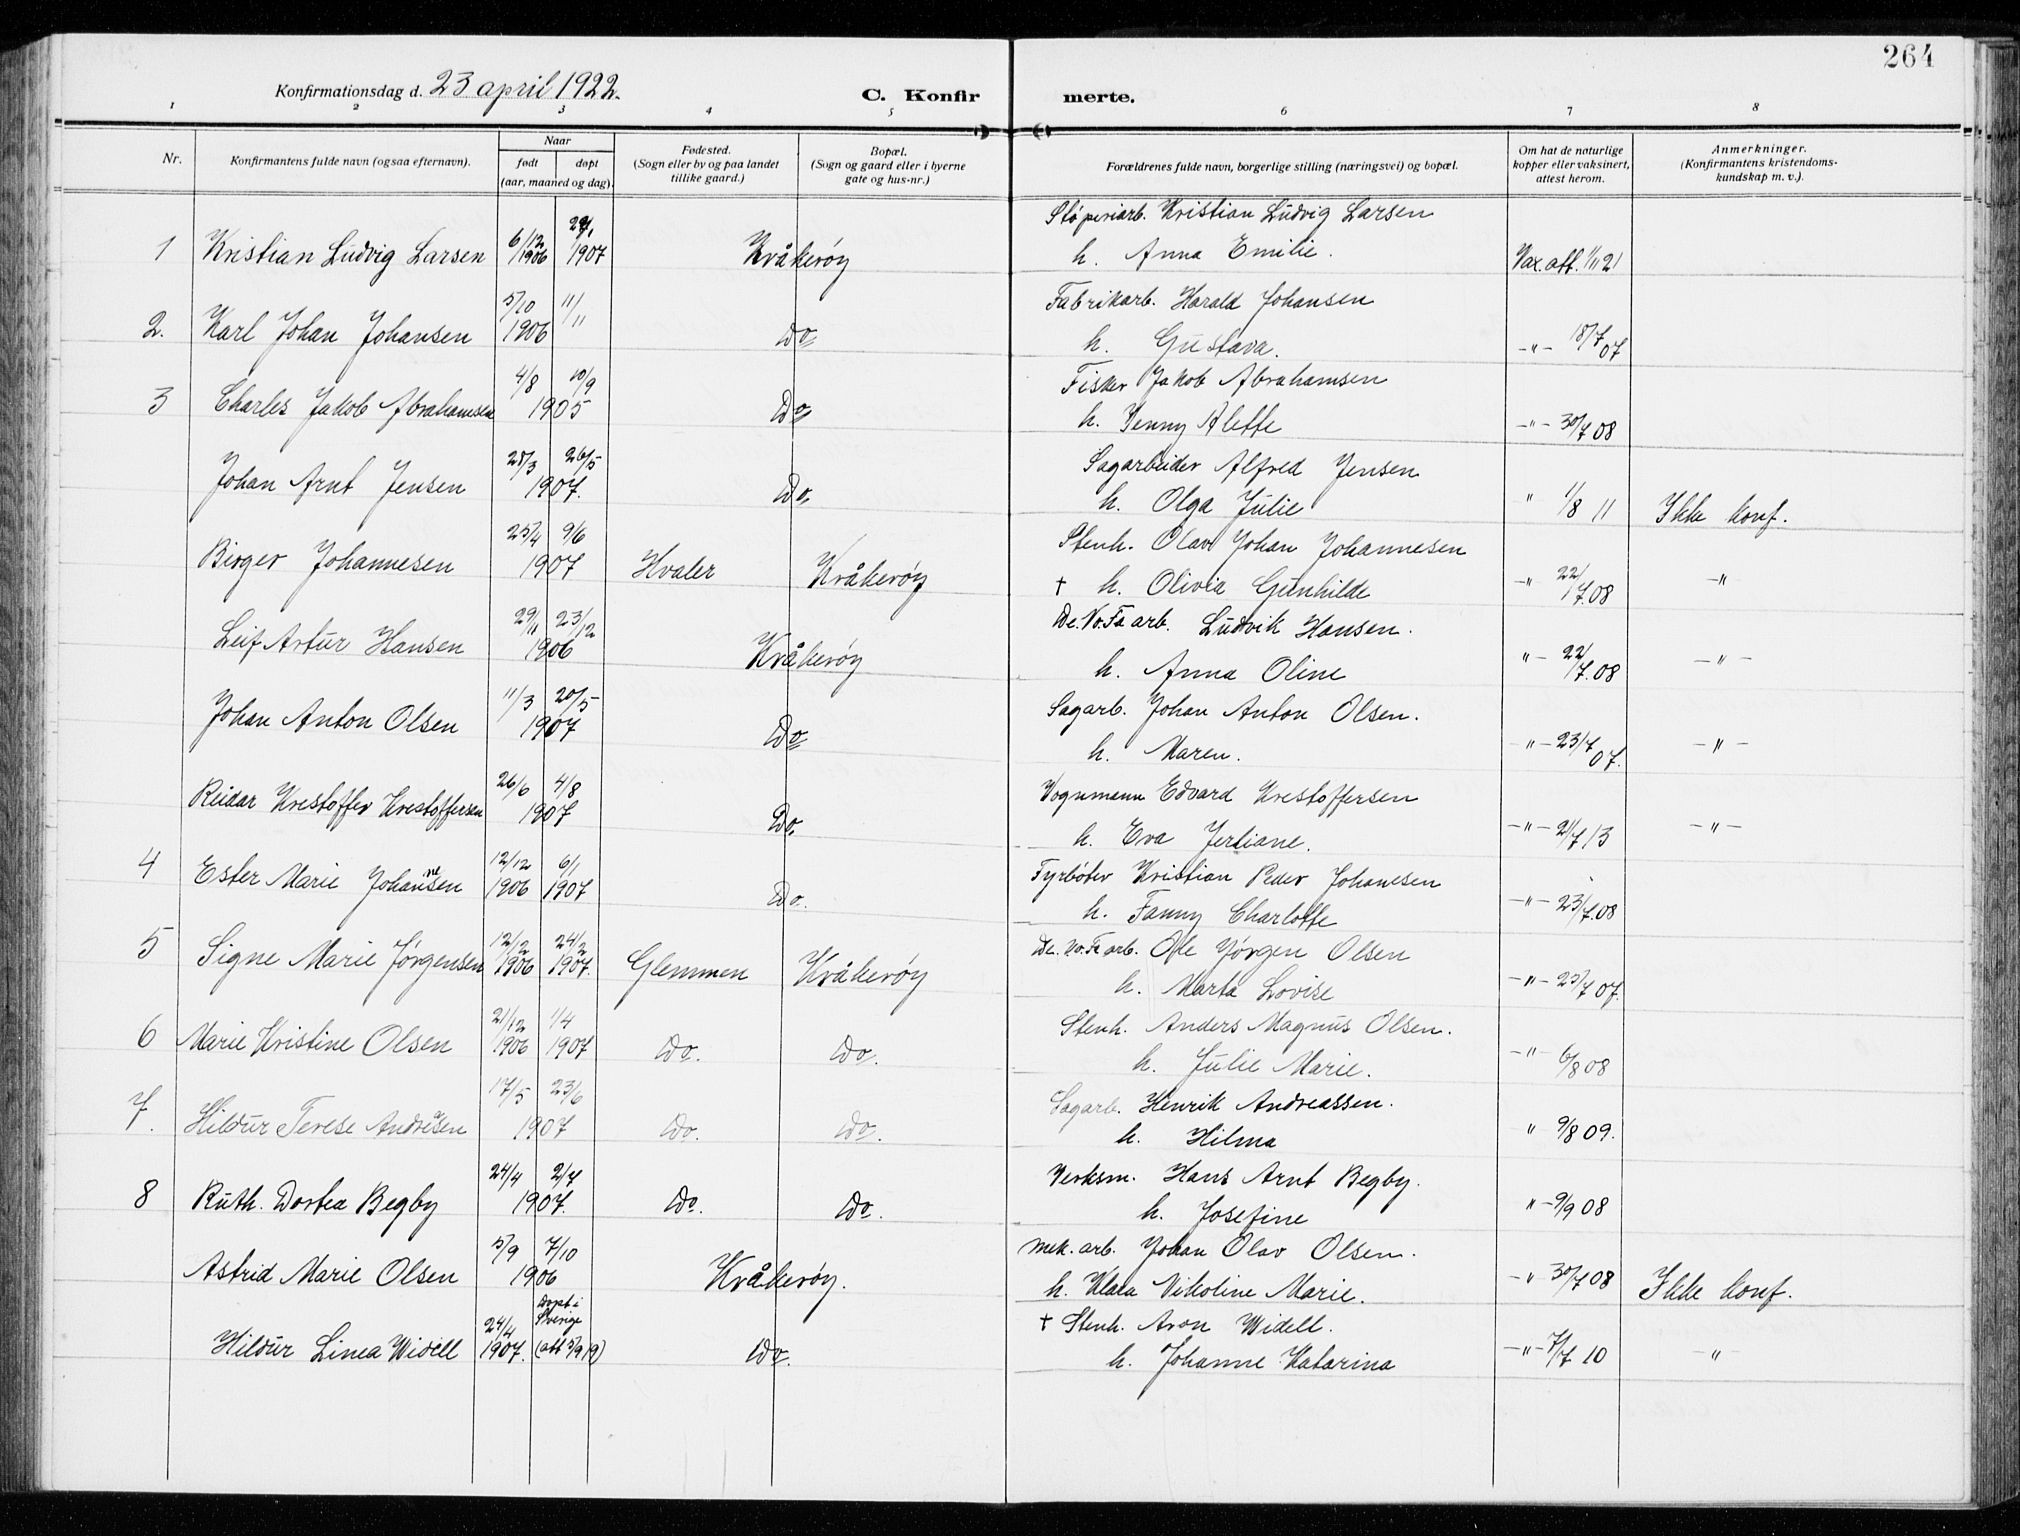 264
Konfirmationsdag d. 23 april 1922.
C. Konfirmerte.
1 2 3 4 5 6 7 8
Nr.
Konfirmantens fulde navn (ogsaa efternavn).
Naar
født
døpt
(aar, maaned og dag).
Fødested.
(Sogn eller by og paa landet
tillike gaard.)
Bopæl.
(Sogn og gaard eller i byerne
gate og hus-nr.)
Forældrenes fulde navn, borgerlige stilling (næringsvei) og bopæl.
Om hat de naturlige
kopper eller vaksinert,
attest herom.
Anmerkninger.
(Konfirmantens kristendoms-
kundskap m. v.).
1 Kristian Ludvig Larsen 6/12 1906 1907 Kråkerøy Støperiarb. Kristian Ludvig Larsen
h. Anna Emilie. Vax. att. 1/11 21
2. Karl Johan Johansen 5/10 1906 11/11 Do Fabrikarb. Harald Johansen
h. Gustava. -"- 18/7 07
3 Charles Jakob Abrahamsen 4/8 10/9 1905 Do Fisker Jakob Abrahamsen
h. Jenny Alette -"- 30/7 08
Johan Arnt Jensen 28/3 26/5 1907. Do. Sagarbeider Alfred Jensen
h. Olga Julie " 1/8 11 Ikke konf.
Birger Johannesen 25/4 9/6 1907 Hvaler Kråkerøy Stenh. Olav Johan Johannesen
† h. Olivia Gunhilde -" 22/7.08 -"
Leif Artur Hansen 29/11 23/12 1906 Kråkerøy De. No. Fa arb. Ludvik Hansen.
h. Anna Oline "- 22/7.08 -"-
Johan Anton Olsen 11/3 20/5 1907 Do Sagarb. Johan Anton Olsen.
h. Maren. "- 23/7 07. -"-
Reidar Krestoffer Krestoffersen 26/6 4/8 1907 Do. Vognmann Edvard Krestoffersen
h. Eva Jertiane. -"- 21/7 13 -"-
4 Ester Marie Johannesen 12/12 1906 6/1 1907 Do. Fyrbøter Kristian Peder Johanesen
h. Fanny Charlotte -"- 23/7.08
5 Signe Marie Jørgensen 12/12 1906 24/2 1907. Glemmen Kråkerøy De. No. Fa arb. Ole Jørgen Olsen
h. Marta Lovise -"- 23/7 07.
6 Marie Kristine Olsen 21/12 1906 1/4 1907 Do. Do. Stenh. Anders Magnus Olsen.
h. Julie Marie. -"- 6/8 08
7. Hildur Terese Andresen 17/5 23/6 1907 Do. Do. Sagarb. Henrik Andreassen.
h. Hilma " 9/8 09.
8 Ruth. Dortea Begby 24/4 2/7 1907. Do. Do. Verksm. Hans Arnt Begby.
h. Josefine "- 9/9 08
Astrid Marie Olsen 5/9 7/10 1906 Kråkerøy. Mek. arb. Johan Olav Olsen.
h. Klara Nikoline Marie. -" 30/7 08 Ikke konf.
Hildur Linea Widell 24/4 1907. Døpt i Sverige (att 5/9 19) Do. † Stenh. Aron Widell.
h. Johanne Katarina -"- 7/7 10 -"-